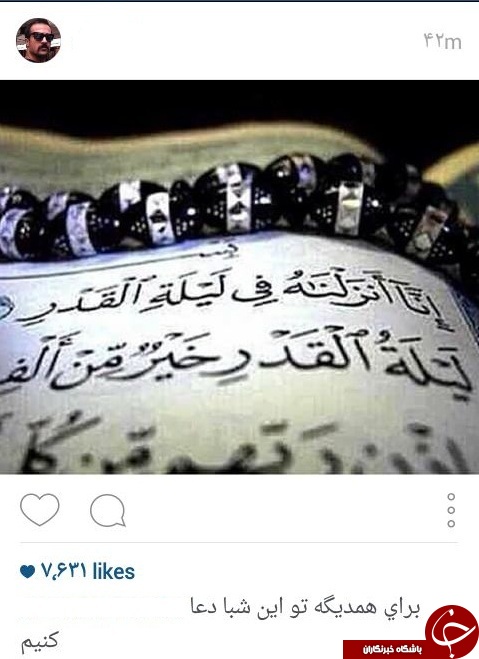 ۴۲m
إِنَّآ أَنزَلْنَـٰهُ فِى لَيْلَةِ ٱلْقَدْرِ
لَيْلَةُ ٱلْقَدْرِ خَيْرٌ مِّنْ أَلْفِ
۷,۶۳۱ likes
براي همديگه تو اين شبا دعا
كنيم
باشگاه خبرنگاران